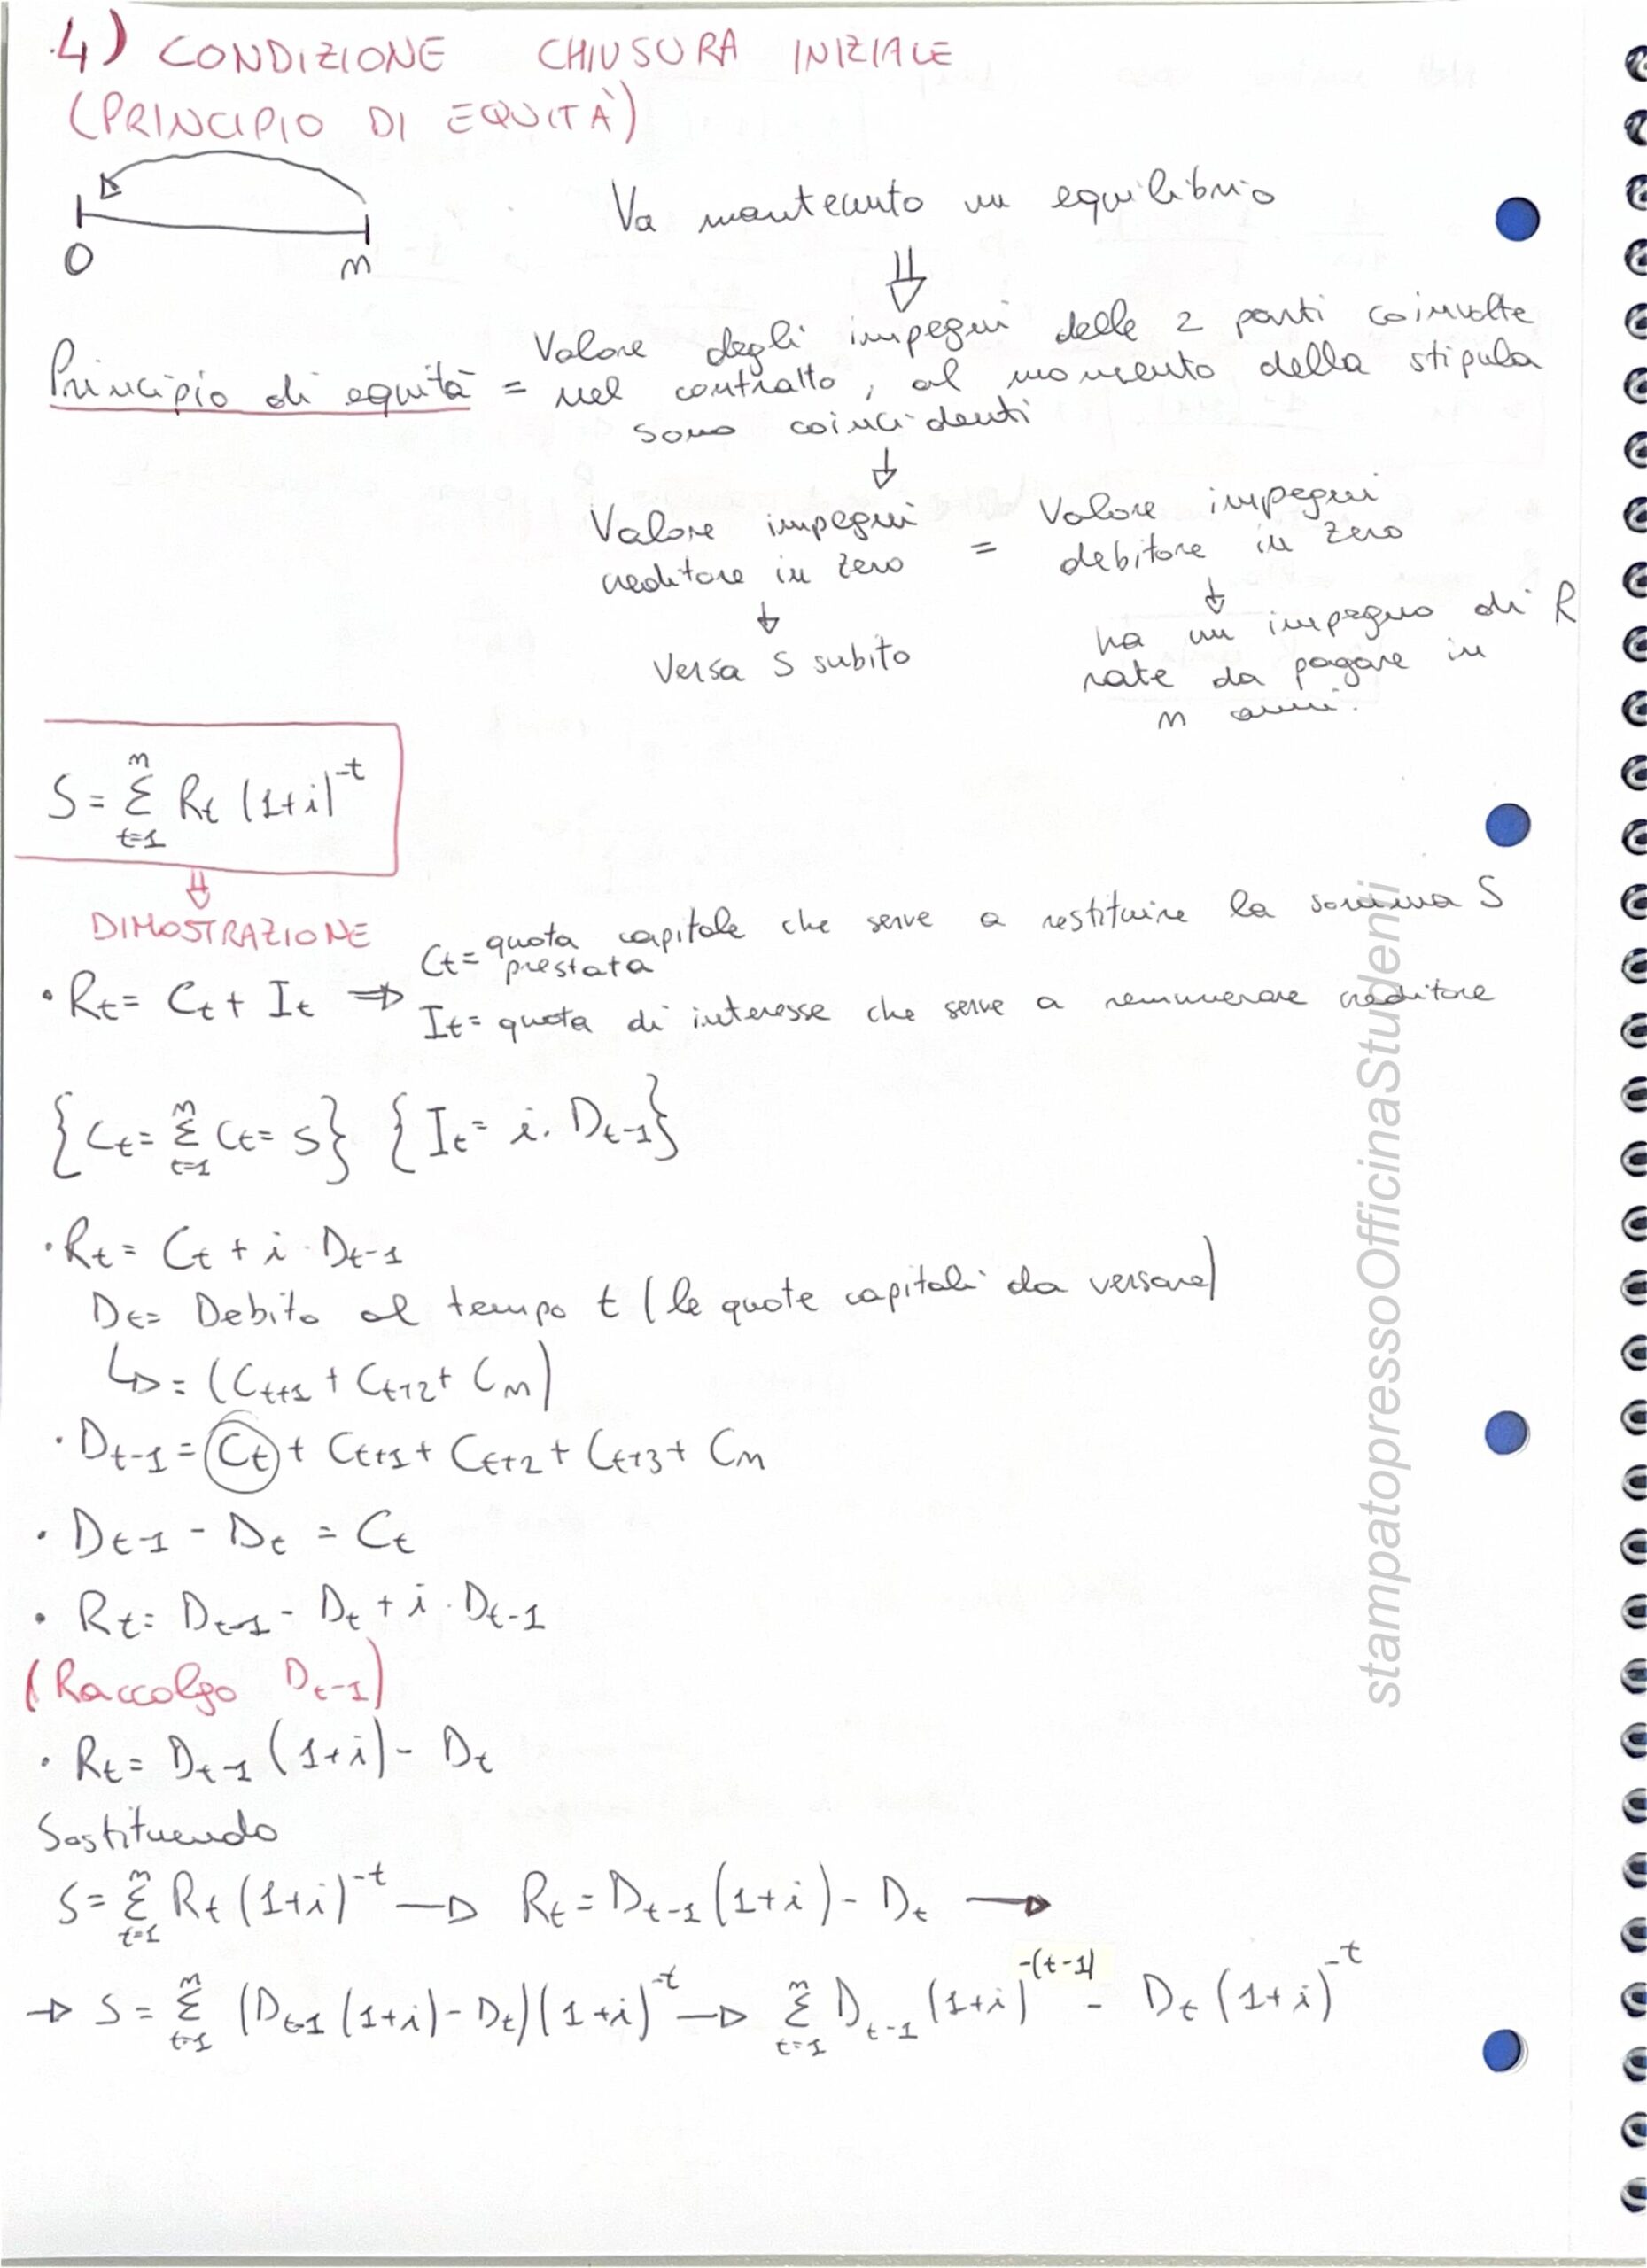 4) CONDIZIONE CHIUSURA INIZIALE
(PRINCIPIO DI EQUITÀ)
0 n
Va mantenuto un equilibrio
⇓
Principio di equità = Valore degli impegni delle 2 parti coinvolte
nel contratto, al momento della stipula
sono coincidenti
↓
Valore impegni creditore in zero = Valore impegni debitore in zero
↓ ↓
Versa S subito
ha un impegno di R
rate da pagare in
n anni.
S = Σ_{t=1}^{n} Rt (1+i)^{-t}
⇓
DIMOSTRAZIONE
• Rt = Ct + It ⇒
Ct = quota capitale che serve a restituire la somma S
prestata
It = quota di interesse che serve a remunerare creditore
{Ct = Σ_{t=1}^{n} Ct = S} {It = i · Dt-1}
• Rt = Ct + i · Dt-1
Dt = Debito al tempo t (le quote capitali da versare)
↳ = (Ct+1 + Ct+2 + Cn)
• Dt-1 = Ct + Ct+1 + Ct+2 + Ct+3 + Cn
• Dt-1 - Dt = Ct
• Rt = Dt-1 - Dt + i · Dt-1
(Raccolgo Dt-1)
• Rt = Dt-1 (1+i) - Dt
Sostituendo
S = Σ_{t=1}^{n} Rt (1+i)^{-t} → Rt = Dt-1 (1+i) - Dt →
→ S = Σ_{t=1}^{n} (Dt-1 (1+i) - Dt)(1+i)^{-t} → Σ_{t=1}^{n} Dt-1 (1+i)^{-(t-1)} - Dt (1+i)^{-t}
stampatopressoOfficinaStudenti